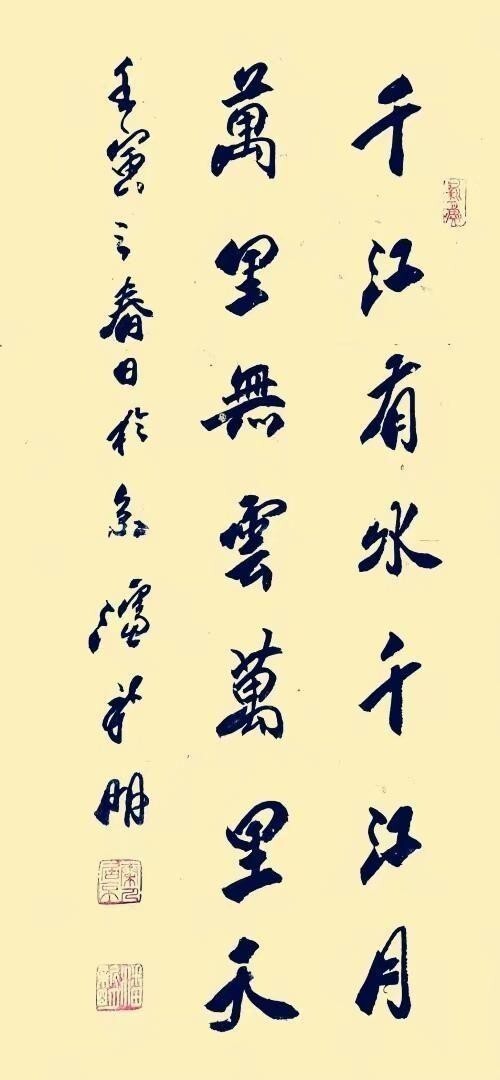 千江有水千江月
萬里無雲萬里天
壬寅之春日於京潘明